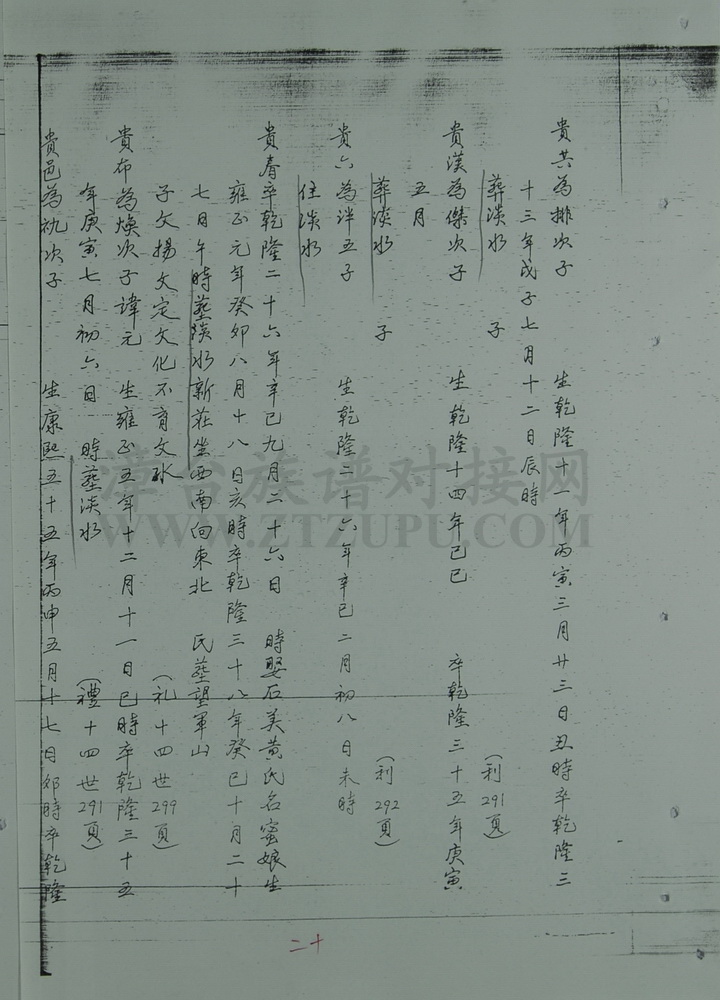 貴共為排次子　生乾隆十一年丙寅三月廿三日丑時卒乾隆三
十三年戊子七月十二日辰時
葬淡水　子　(利291頁)
貴漢為傑次子　生乾隆十四年己巳　卒乾隆三十五年庚寅
五月
葬淡水　子　(利292頁)
貴六為泮五子　生乾隆二十六年辛巳二月初八日未時
住淡水
貴春卒乾隆二十六年辛巳九月二十六日　時娶石美黃氏名蜜娘生
雍正元年癸卯八月十八日亥時卒乾隆三十八年癸巳十月二十
七月午時葬淡水新莊坐西南向東北　氏葬望軍山
子文揚文定文化不育文　(礼十四世299頁)
貴布為煥次子諱元　生雍正五年十二月十一日巳時卒乾隆三十五
年庚寅七月初六日　時葬淡水　(禮十四世291頁)
貴邑為次子　生康熙五十五年丙申五月十七日卯時卒乾隆
二十
漳台族谱对接网
WWW.ZTZUPU.COM